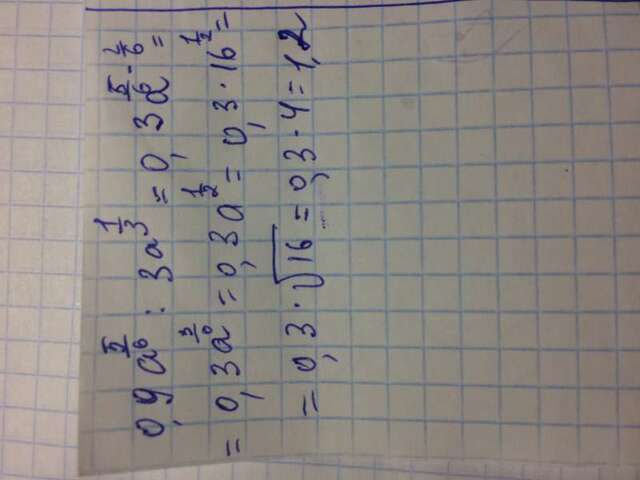 0,9a^{5/6} : 3a^{1/3} = 0,3a^{5/6 - 2/6} =
= 0,3a^{3/6} = 0,3a^{1/2} = 0,3 · 16^{1/2} =
= 0,3 · √16 = 0,3 · 4 = 1,2